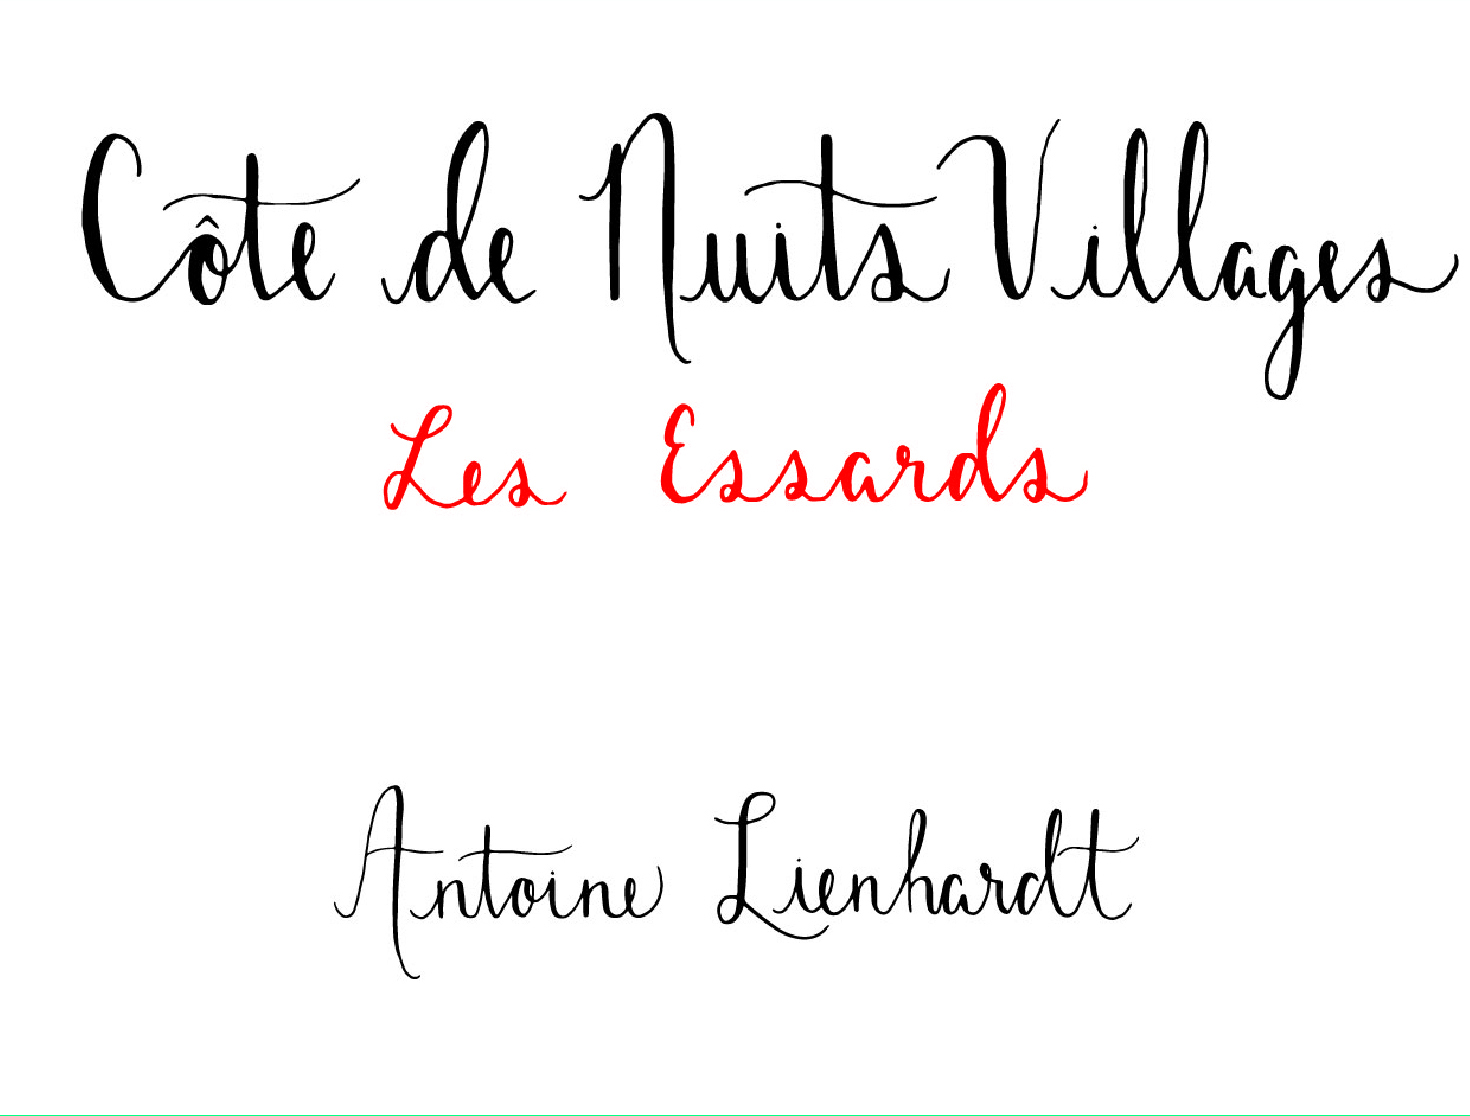 Côte de Nuits Villages
Les Essards
Antoine Lienhardt